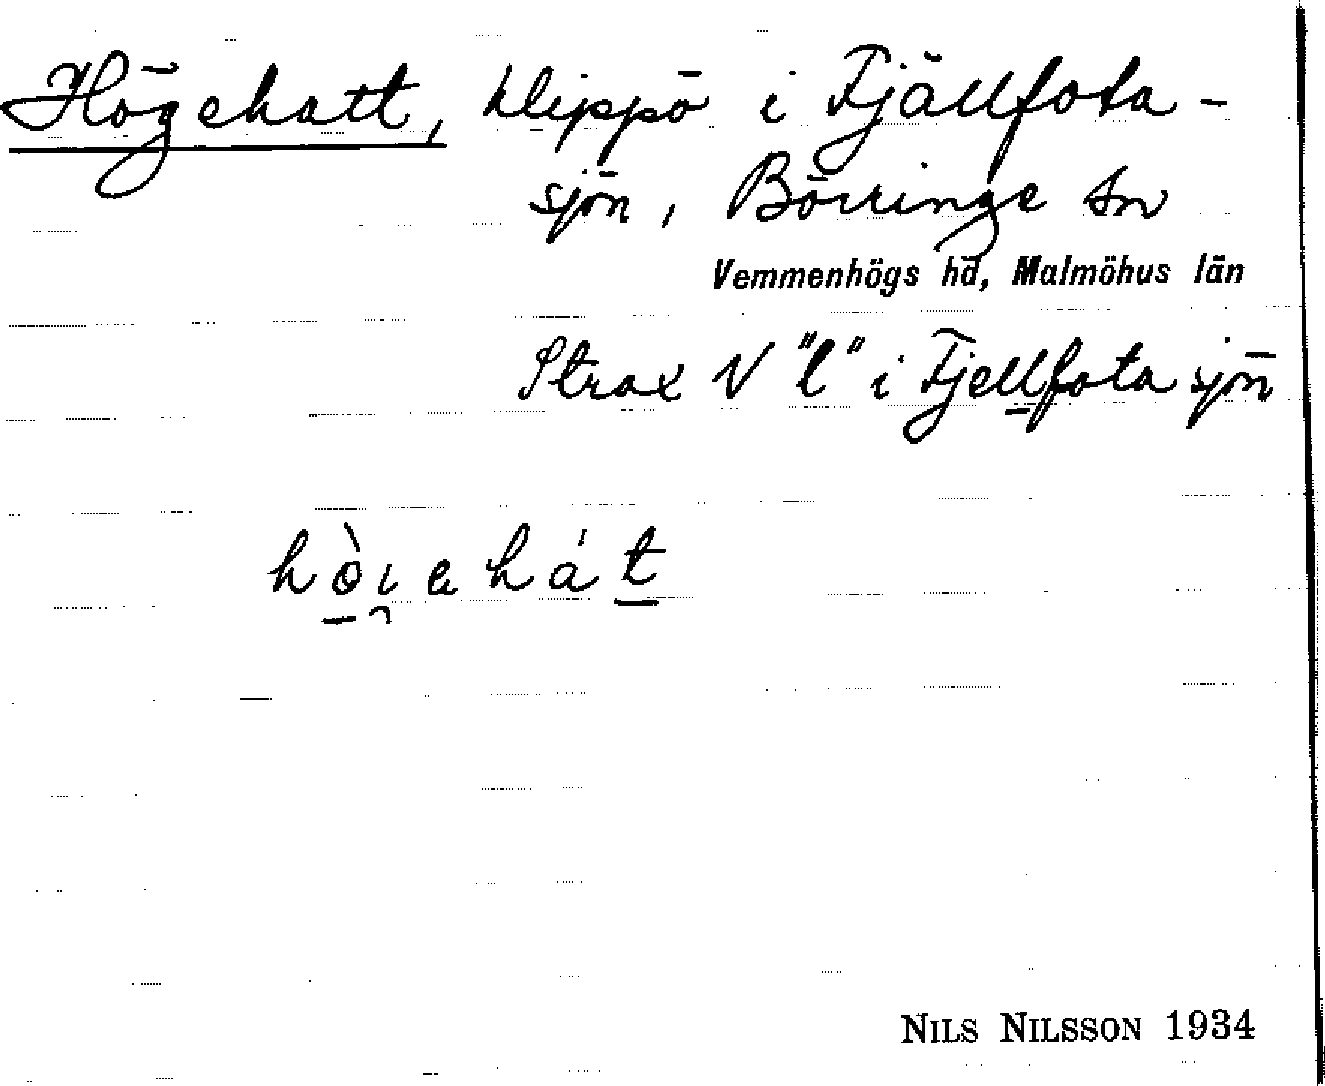 Högehatt, klippö i Fjällfota-
sjön, Börringe sn
Vemmenhögs hd, Malmöhus län
Strax V "l" i Fjellfota sjön
hò̠ı̯ehát̠
NILS NILSSON 1934